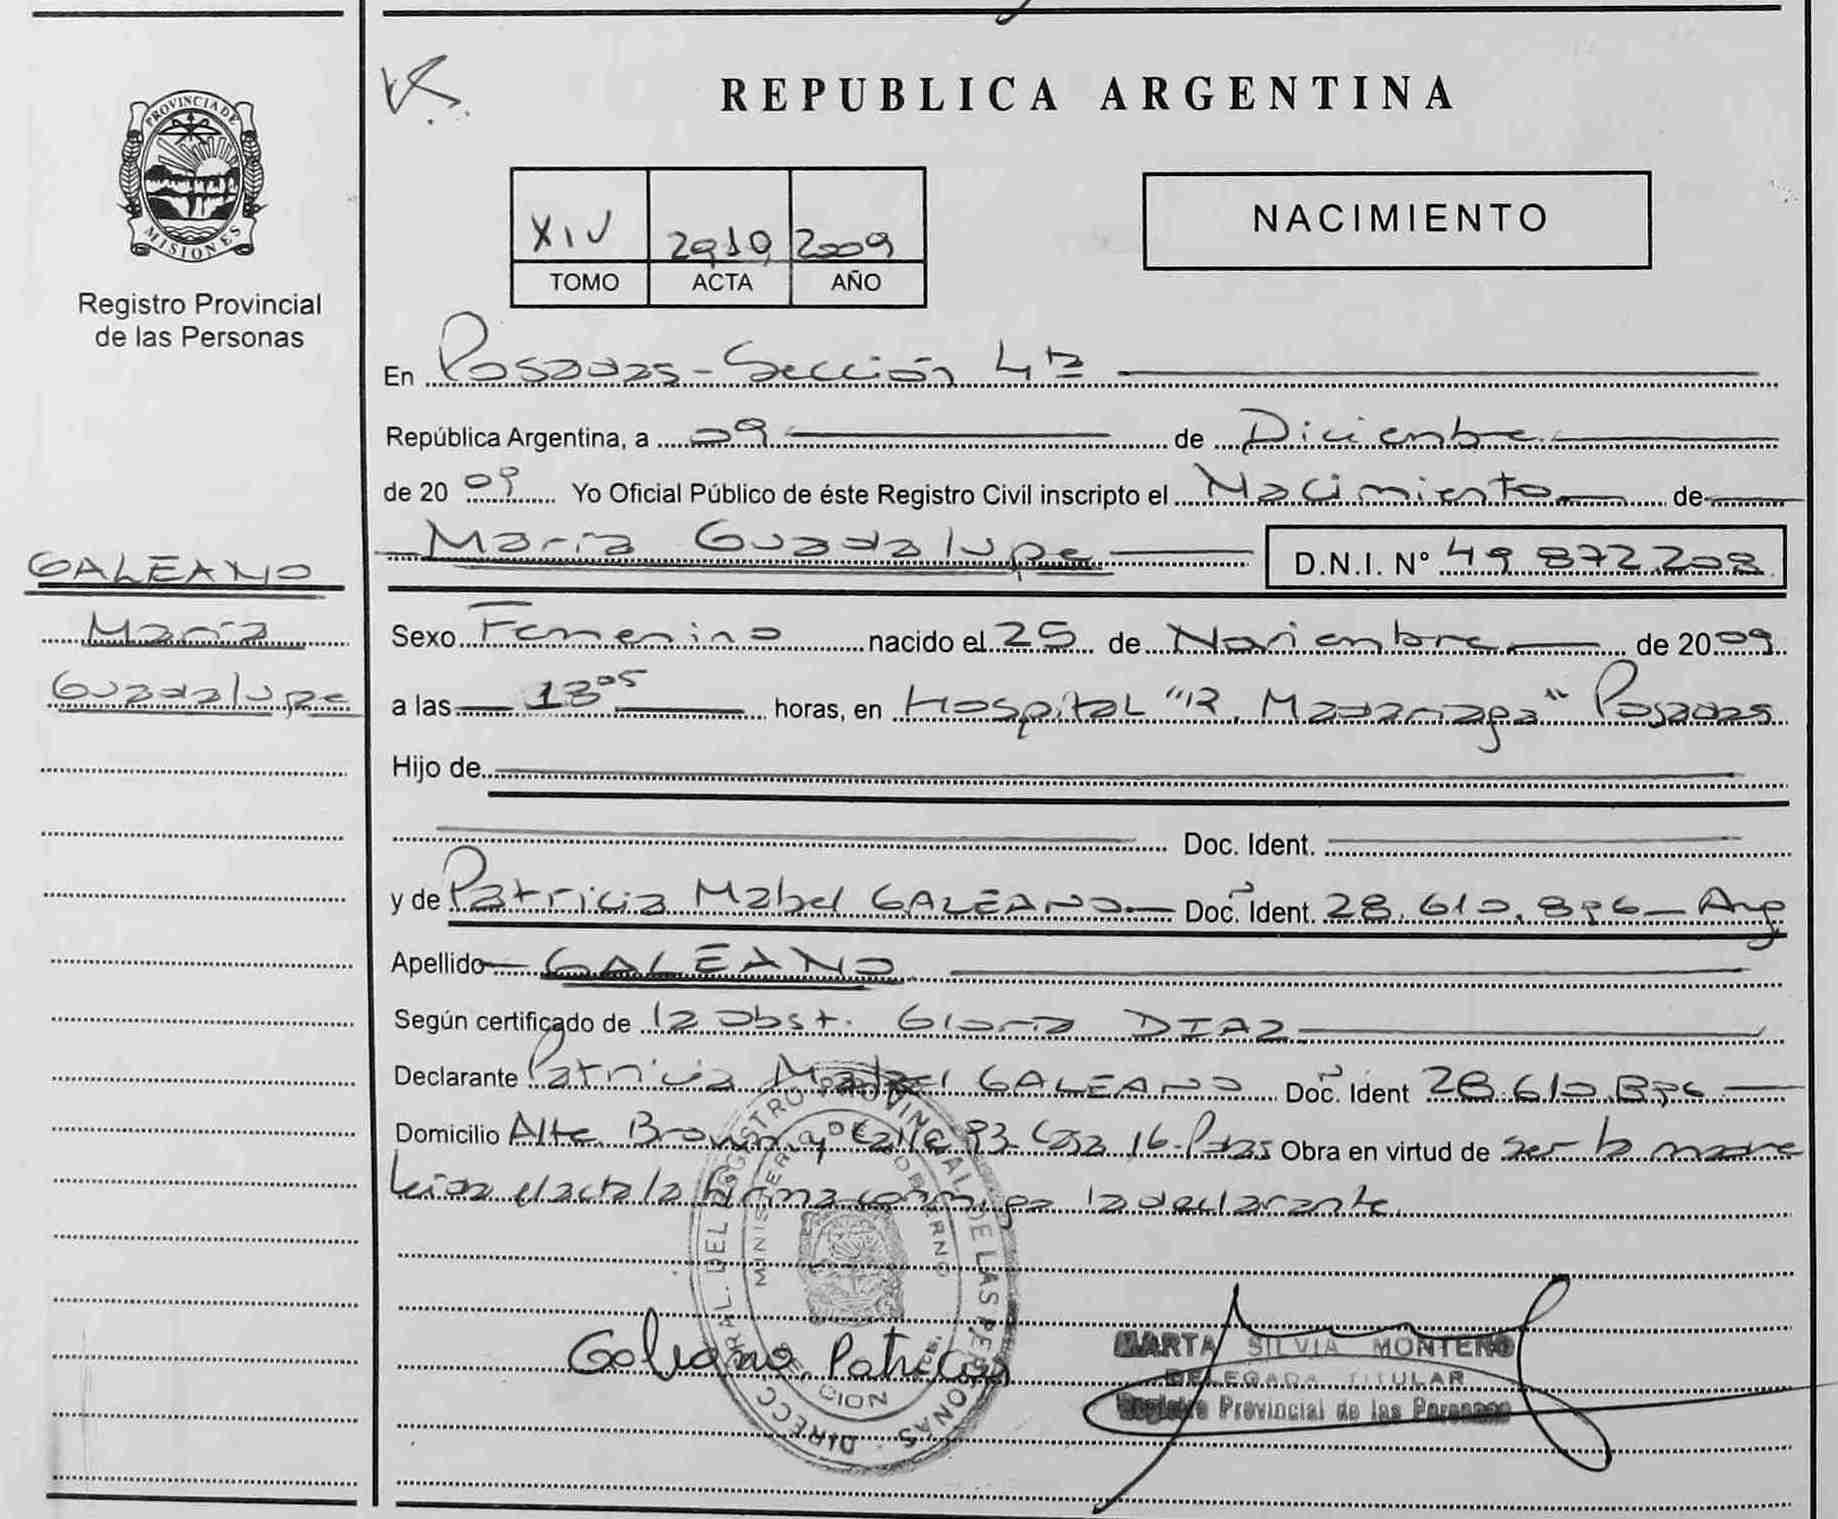 REPUBLICA ARGENTINA
PROVINCIA DE
MISIONES
Registro Provincial
de las Personas
XIV 2910 2009
TOMO ACTA AÑO
NACIMIENTO
En Posadas - Sección 4ta
República Argentina, a 09 de Diciembre
de 2009 Yo Oficial Público de éste Registro Civil inscripto el Nacimiento de
María Guadalupe D.N.I. Nº 49 872.208
GALEANO
María
Guadalupe
Sexo Femenino nacido el 25 de Noviembre de 2009
a las 13 05 horas, en Hospital "R. Madariaga" Posadas
Hijo de
Doc. Ident.
y de Patricia Mabel GALEANO Doc. Ident. 28.610.896 - Arg
Apellido GALEANO
Según certificado de la Obst. Gloria DIAZ
Declarante Patricia Mabel GALEANO Doc. Ident 28.610.896
Domicilio Alte. Brown y Calle 93 Casa 16 - Pdas Obra en virtud de ser la madre
Leida el acta la firma conmigo la declarante.
Galeano, Patricia
MARTA SILVIA MONTERO
DELEGADA TITULAR
Registro Provincial de las Personas